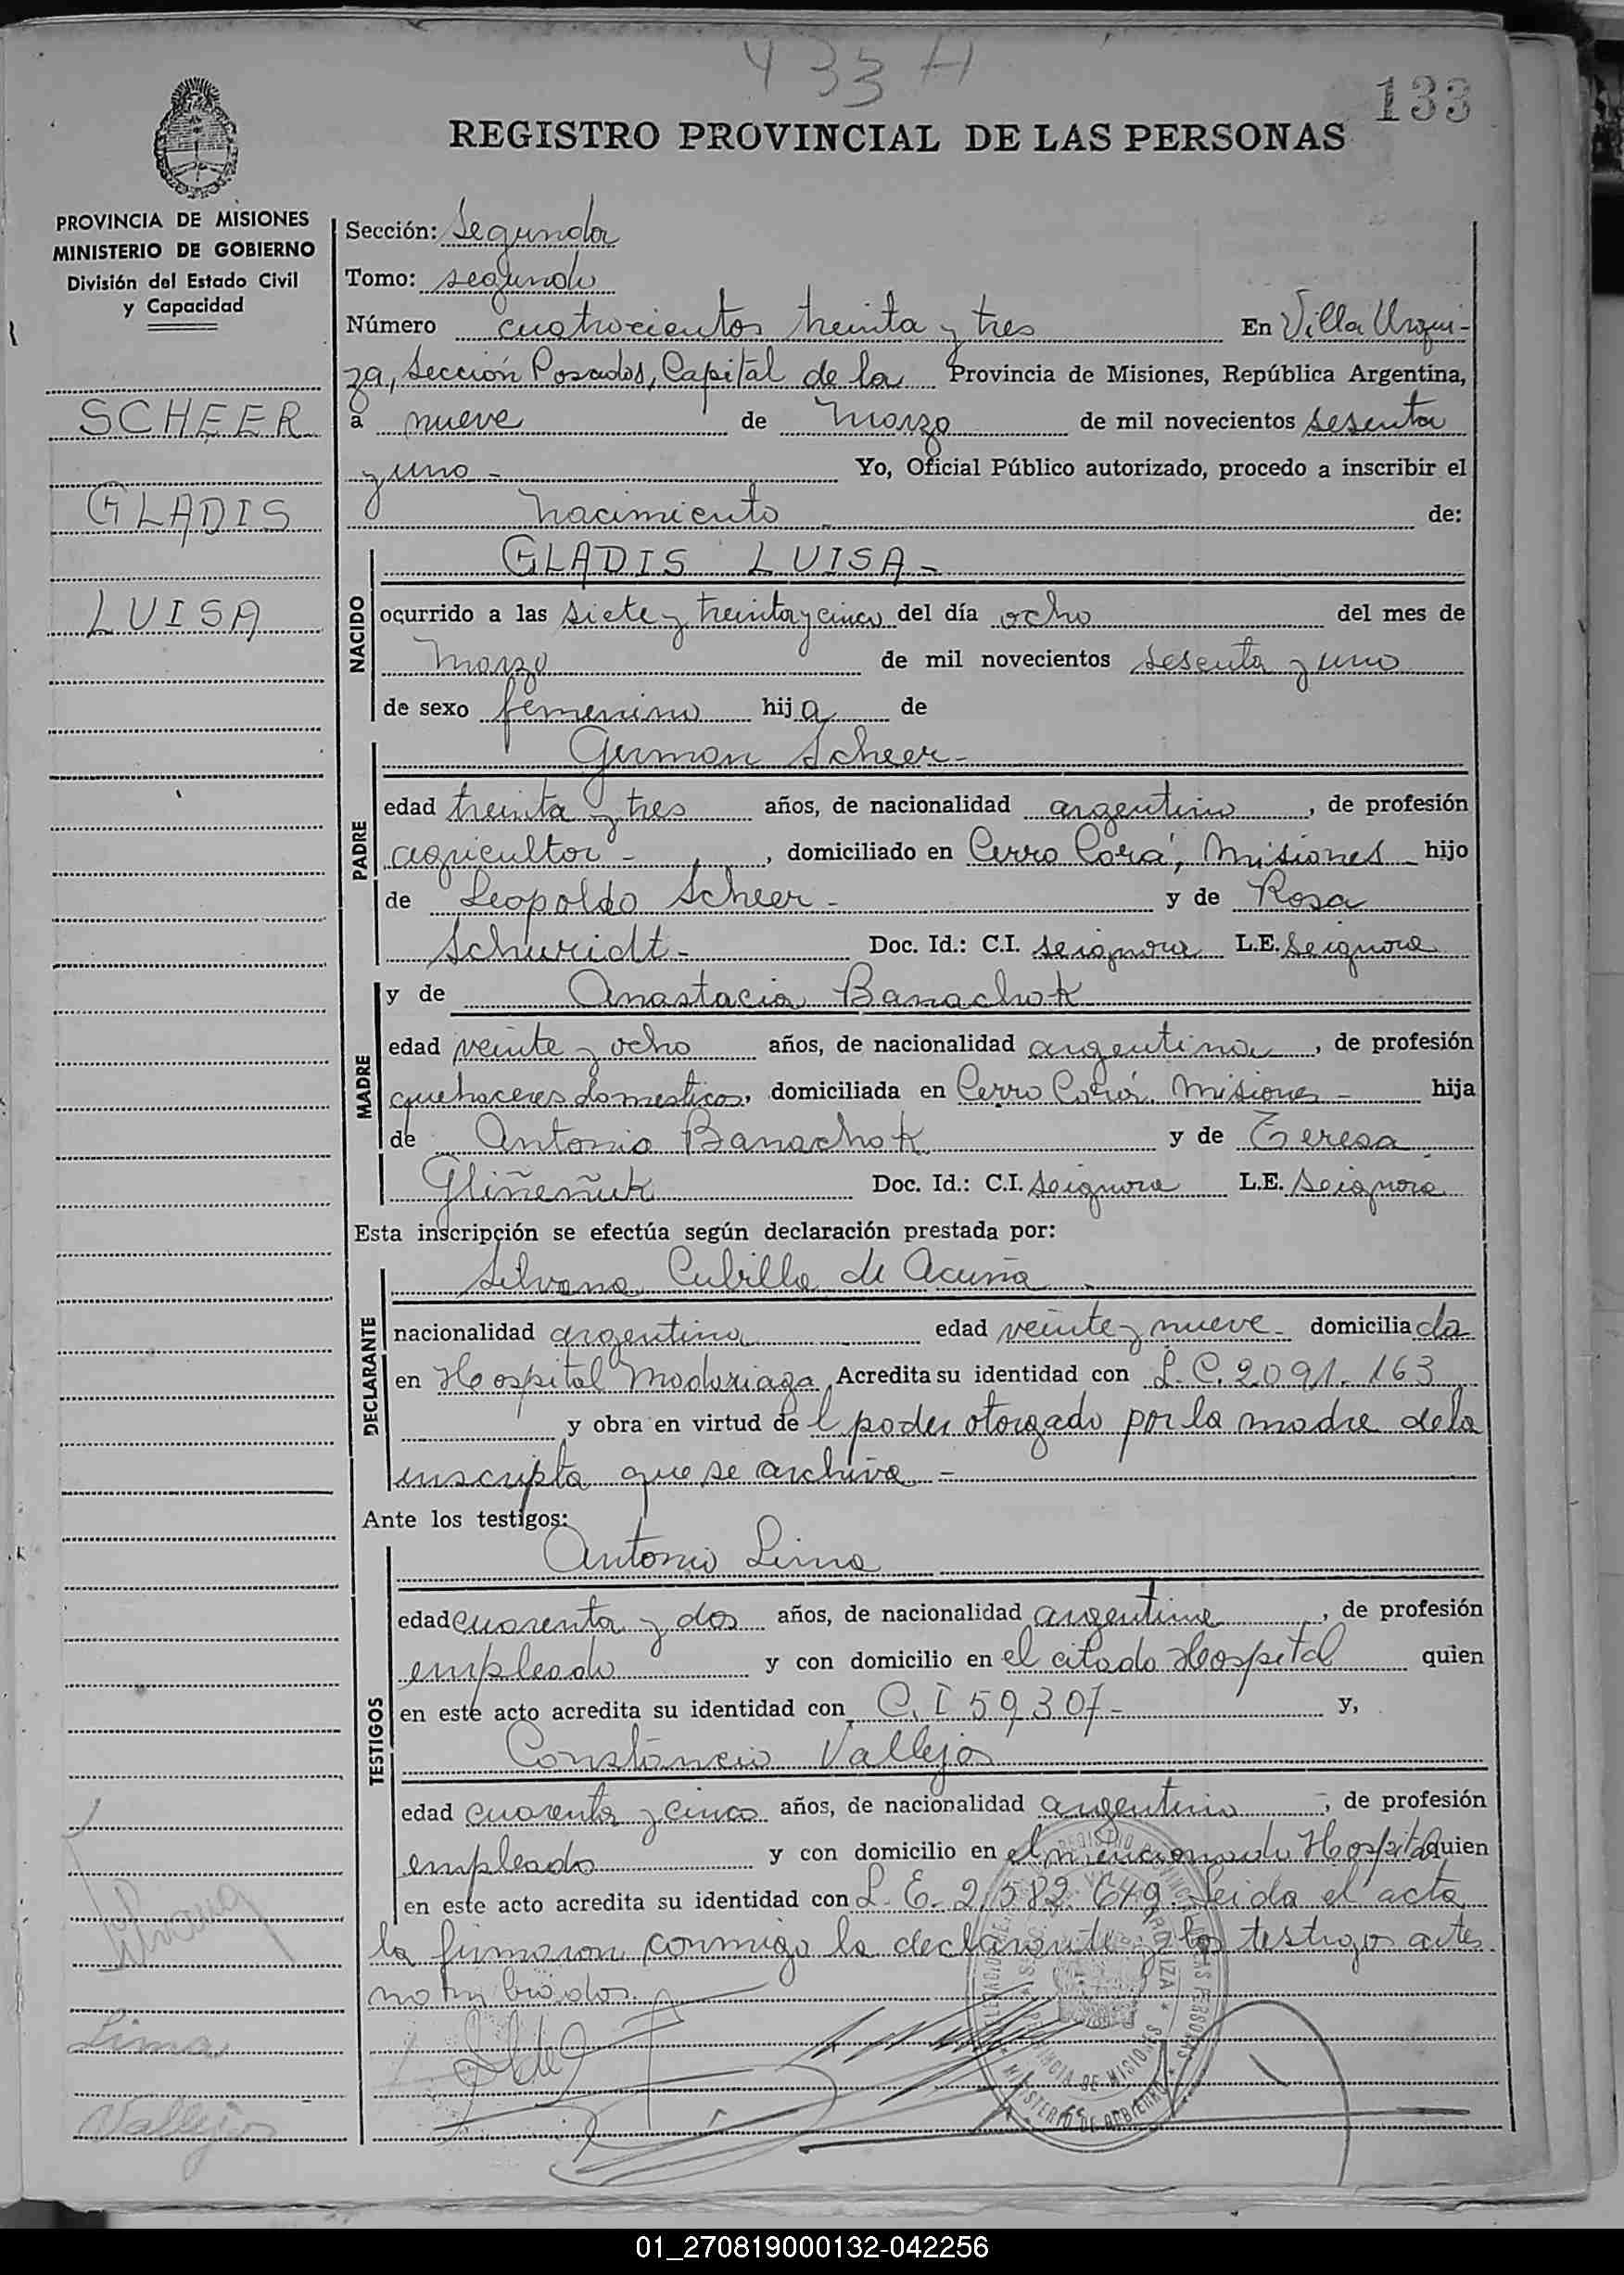 433 H
133
REGISTRO PROVINCIAL DE LAS PERSONAS
PROVINCIA DE MISIONES
MINISTERIO DE GOBIERNO
División del Estado Civil
y Capacidad
SCHEER
GLADIS
LUISA
Sección: Segunda
Tomo: segundo
Número cuatrocientos treinta y tres En Villa Urqui-
za, Sección Posadas, Capital de la Provincia de Misiones, República Argentina,
a nueve de Marzo de mil novecientos sesenta
y uno - Yo, Oficial Público autorizado, procedo a inscribir el
nacimiento - de:
NACIDO
GLADIS LUISA -
ocurrido a las siete y treinta y cinco del día ocho del mes de
marzo de mil novecientos sesenta y uno
de sexo femenino hija de
PADRE
German Scheer -
edad treinta y tres años, de nacionalidad argentino, de profesión
agricultor -, domiciliado en Cerro Corá, Misiones hijo
de Leopoldo Scheer - y de Rosa
Schmidt - Doc. Id.: C.I. se ignora L.E. se ignora
MADRE
y de Anastacia Banachok
edad veinte y ocho años, de nacionalidad argentina, de profesión
quehaceres domesticos, domiciliada en Cerro Corá, Misiones - hija
de Antonio Banachok y de Teresa
Gliñeñuk Doc. Id.: C.I. se ignora L.E. se ignora
Esta inscripción se efectúa según declaración prestada por:
DECLARANTE
Silvana Cubilla de Acuña -
nacionalidad argentina edad veinte y nueve - domiciliada
en Hospital Madariaga, Acredita su identidad con L.C. 2.091.163
y obra en virtud del poder otorgado por la madre de la
inscripta que se archiva -
Ante los testigos:
TESTIGOS
Antonio Lima
edad cuarenta y dos años, de nacionalidad argentina, de profesión
empleado y con domicilio en el citado Hospital quien
en este acto acredita su identidad con C.I 59307 - y,
Constancio Vallejos
edad cuarenta y cinco años, de nacionalidad argentino, de profesión
empleado y con domicilio en el mencionado Hospital quien
en este acto acredita su identidad con L.E. 2.582.649 Leida el acta
la firmaron conmigo la declarante y los testigos antes
nombrados.
Silvana
Lima
Vallejos
MINISTERIO DE GOBIERNO
01_270819000132-042256